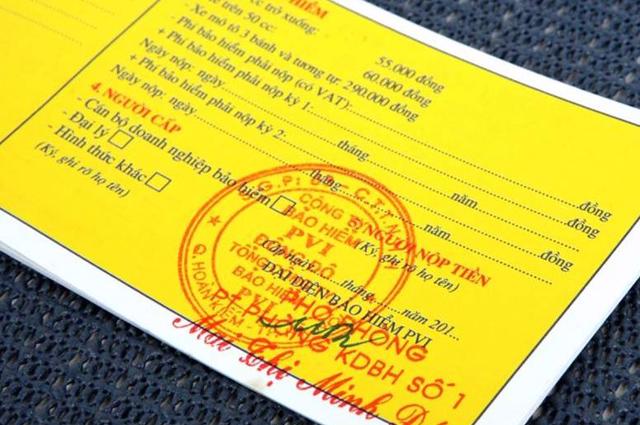 HIỂM
cc trở xuống: 55.000 đồng
trên 50 cc: 60.000 đồng
- Xe mô tô 3 bánh và tương tự: 290.000 đồng
+ Phí bảo hiểm phải nộp (có VAT): đồng
Ngày nộp: ngày tháng năm
+ Phí bảo hiểm phải nộp kỳ 1: đồng
Ngày nộp: ngày tháng năm
+ Phí bảo hiểm phải nộp kỳ 2: đồng
Ngày nộp: ngày tháng năm
4. NGƯỜI CẤP
- Cán bộ doanh nghiệp bảo hiểm
- Đại lý
- Hình thức khác
(Ký, ghi rõ họ tên)
NGƯỜI NỘP TIỀN
(Ký, ghi rõ họ tên)
(Cấp ngày tháng năm 201...
ĐẠI DIỆN BẢO HIỂM PVI
CÔNG TY
BẢO HIỂM
PVI
ĐÔNG ĐÔ
TỔNG
BẢO HIỂM
PVI
Q. HOÀN KIẾM
PHÓ PHÒNG
PT PHÒNG KDBH SỐ 1
Mai Thị Minh